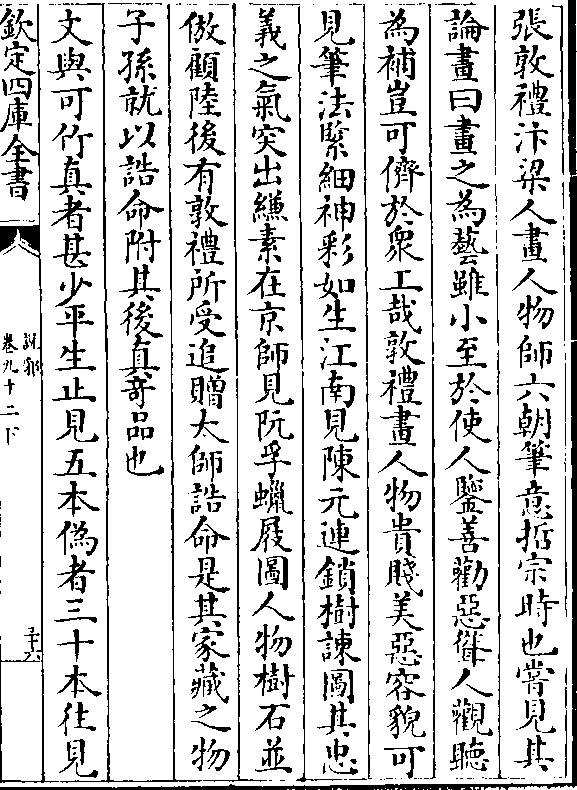 張敦禮汴梁人畫人物師六朝筆意哲宗時也嘗見其
論畫曰畫之為藝雖小至於使人鑒善勸惡聳人觀聽
為補豈可儕於衆工哉敦禮畫人物貴賤美惡容貌可
見筆法緊細神彩如生江南見陳元連鎖樹諫圖其忠
義之氣突出縑素在京師見阮孚蠟屐圖人物樹石並
倣顧陸後有敦禮所受追贈太師誥命是其家藏之物
子孫就以誥命附其後真竒品也
文與可竹真者甚少平生止見五本偽者三十本往見
欽定四庫全書
說郛
卷九十二下
三十六